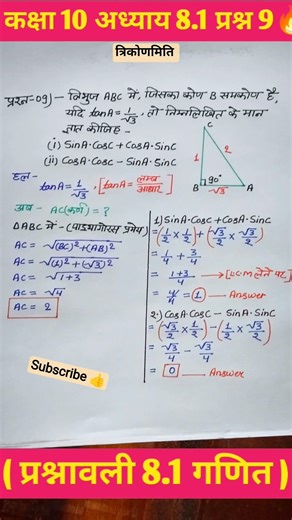 कक्षा 10 अध्याय 8.1 प्रश्न 9🔥
त्रिकोणमिति
प्रश्न-09)- त्रिभुज ABC में, जिसका कोण B समकोण है,
यदि tanA = 1/√3, तो निम्नलिखित के मान
ज्ञात कीजिए -
(i) SinA·CosC + CosA·SinC
(ii) CosA·CosC - SinA·SinC
C
1
2
B
90°
√3
A
हल- tanA = 1/√3, [tanA = लम्ब/आधार]
अब - AC(कर्ण) = ?
∆ABC में - (पाइथागोरस प्रमेय)
AC = √(BC)²+(AB)²
AC = √(1)²+(√3)²
AC = √1+3
AC = √4
AC = 2
1) SinA·CosC + CosA·SinC
= (1/2 × 1/2) + (√3/2 × √3/2)
= 1/4 + 3/4
= 1+3/4 → [LCM लेने पर]
= 4/4 = 1 - Answer
2) CosA·CosC - SinA·SinC
= (√3/2 × 1/2) - (1/2 × √3/2)
= √3/4 - √3/4
= 0 Answer
Subscribe 👍
( प्रश्नावली 8.1 गणित )